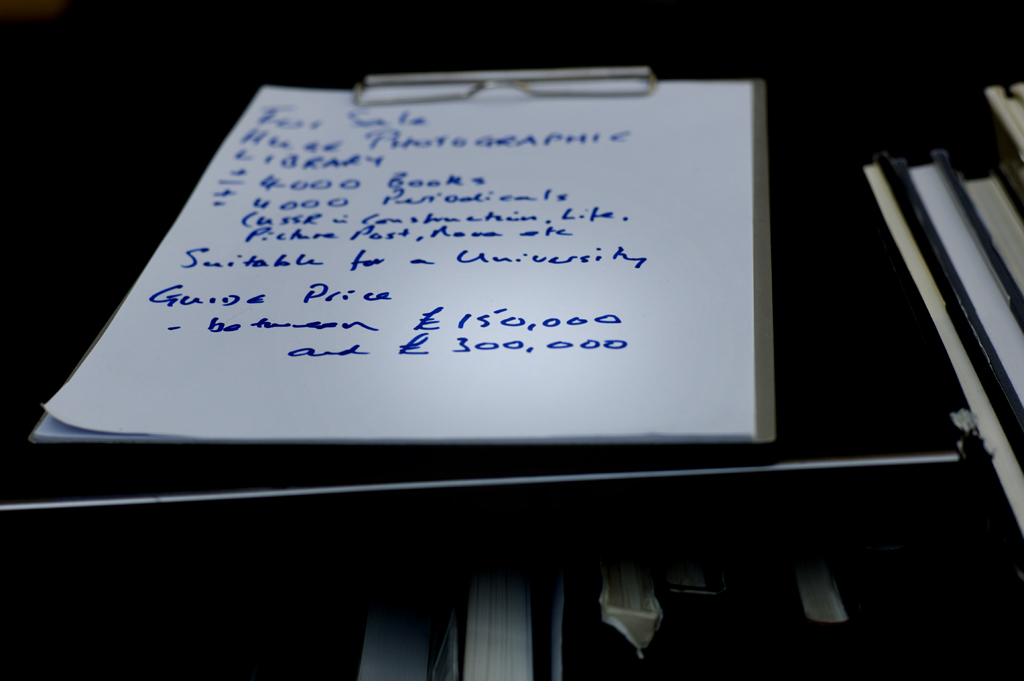 For Sale
HUGE PHOTOGRAPHIC
LIBRARY
+/- 4000 Books
+/- 4000 Periodicals
(USSR in Construction, Life,
Picture Post, Nova etc
Suitable for a University
GUIDE Price
- between £150,000
and £300,000